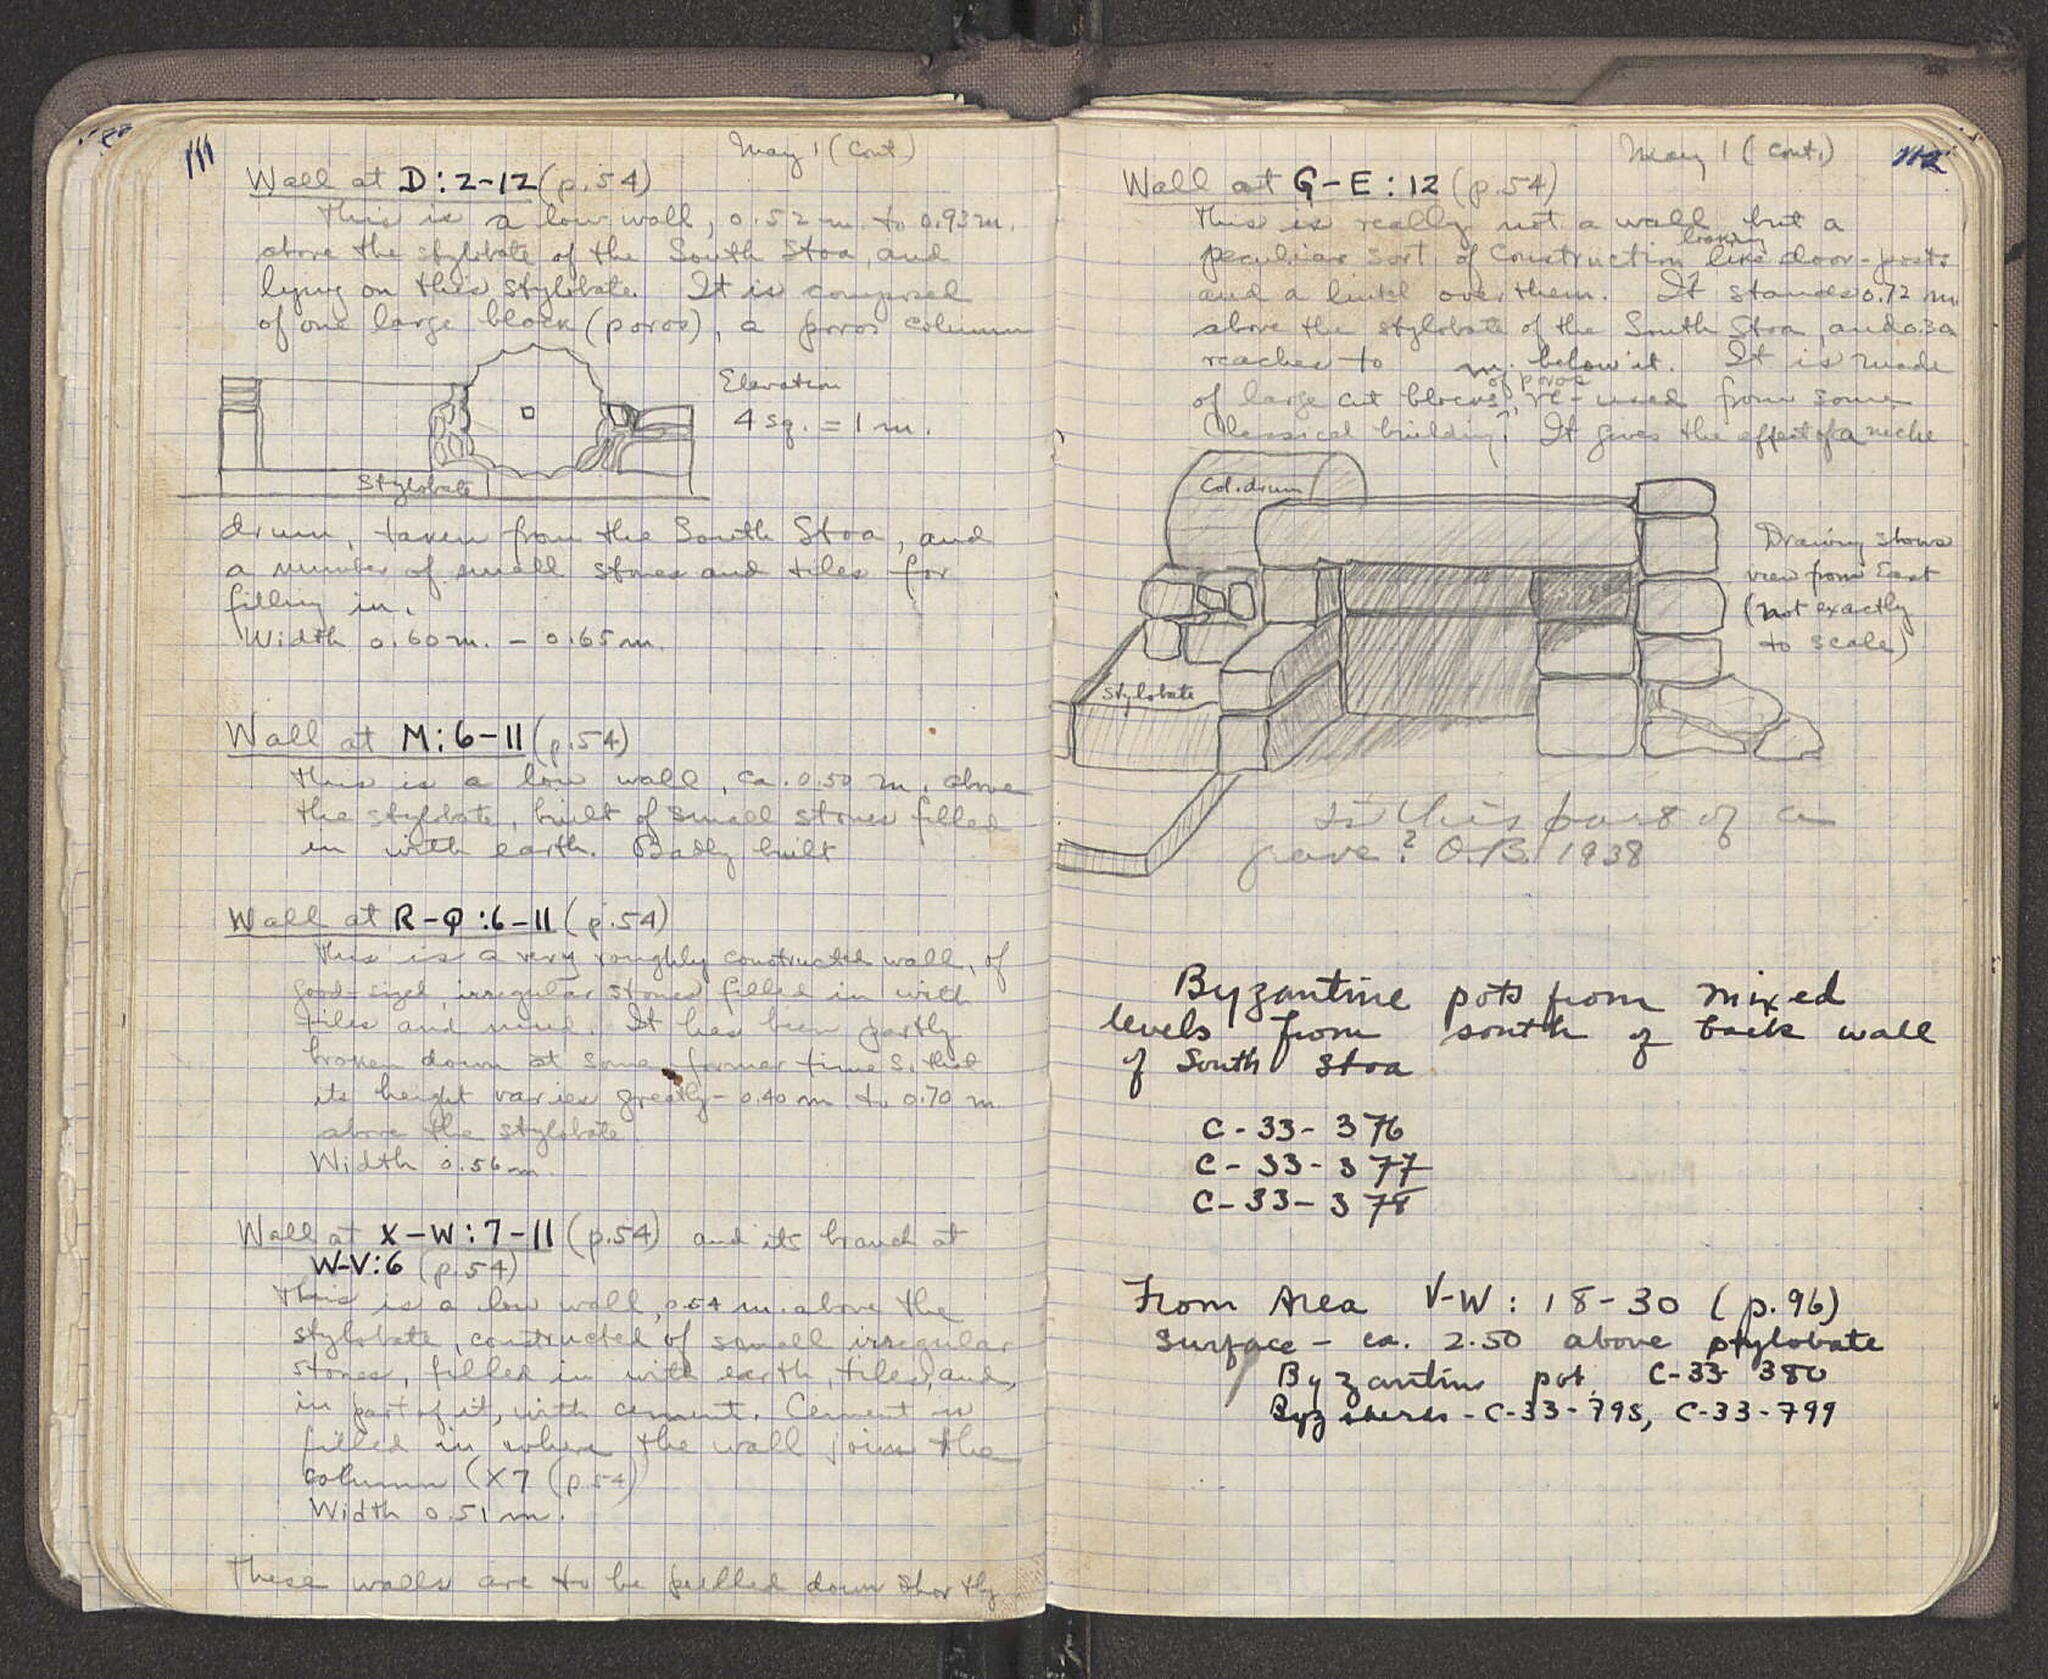 111
May 1 (Cont.)
Wall at D:2-12 (p.54)
This is a low wall, 0.52 m. to 0.93 m.
above the stylobate of the South Stoa, and
lying on this stylobate. It is composed
of one large block (poros), a poros column
Elevation
4 sq. = 1 m.
Stylobate
drum, taken from the South Stoa, and
a number of small stones and tiles for
filling in.
Width 0.60 m. - 0.65 m.
Wall at M:6-11 (p.54)
This is a low wall, ca. 0.50 m. above
the stylobate, built of small stones filled
in with earth. Badly built
Wall at R-Q:6-11 (p.54)
This is a very roughly constructed wall, of
good-sized, irregular stones filled in with
tiles and mud. It has been partly
broken down at some former time so that
its height varies greatly - 0.40 m. to 0.70 m.
above the stylobate.
Width 0.56 m.
Wall at X-W:7-11 (p.54) and its branch at
W-V:6 (p.54)
This is a low wall, 0.54 m. above the
stylobate, constructed of small irregular
stones, filled in with earth, tiles, and,
in part of it, with cement. Cement is
filled in where the wall joins the
column (X7 (p.54)
Width 0.51 m.
These walls are to be pulled down shortly
May 1 (cont.)
112
Wall at G-E:12 (p.54)
This is really not a wall but a
peculiar sort of construction looking like door-posts
and a lintel over them. It stands 0.72 m
above the stylobate of the South Stoa and 0.30
reaches to m. below it. It is made
of large cut blocks of poros, re-used from some
Classical building. It gives the effect of a niche
Col. drum
Drawing shows
view from East
(not exactly
to scale)
Stylobate
Is this part of a
grave? O.B. 1938
Byzantine pots from mixed
levels from south of back wall
of South Stoa
C-33-376
C-33-377
C-33-378
From Area V-W: 18-30 (p.96)
Surface - ca. 2.50 above stylobate
Byzantine pot C-33-380
Byz sherds - C-33-798, C-33-799